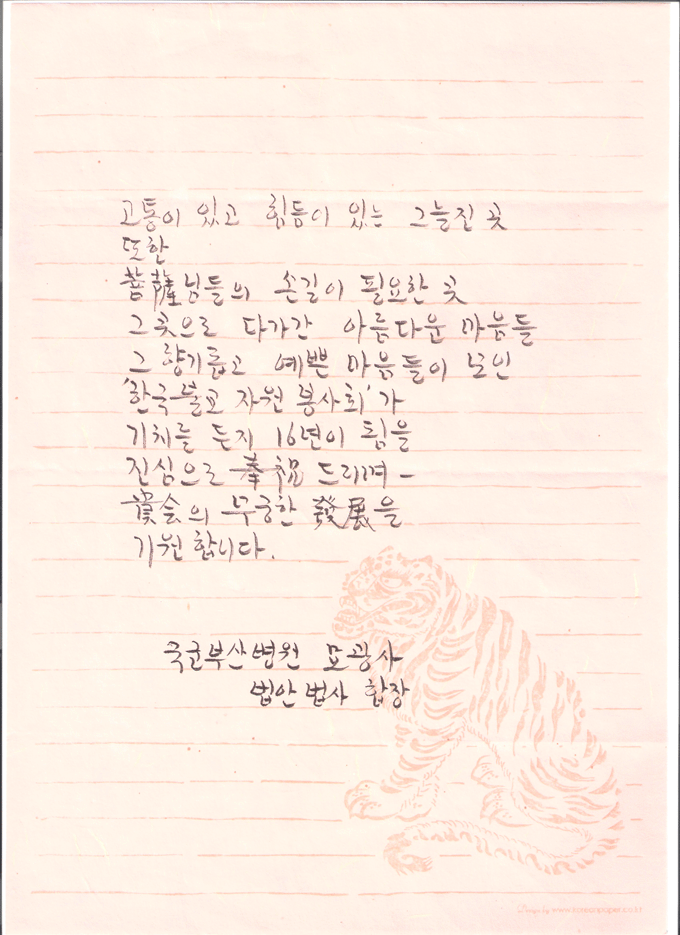 고통이 있고 힘듬이 있는 그늘진 곳
또한
菩薩님들의 손길이 필요한 곳
그곳으로 다가간 아름다운 마음들
그 향기롭고 예쁜 마음들이 모인
'한국불교 자원 봉사회'가
기치를 든지 16년이 됨을
진심으로 奉祝 드리며 -
貴会의 무궁한 發展을
기원합니다.
국군부산병원 묘광사
법안 법사 합장
Design by